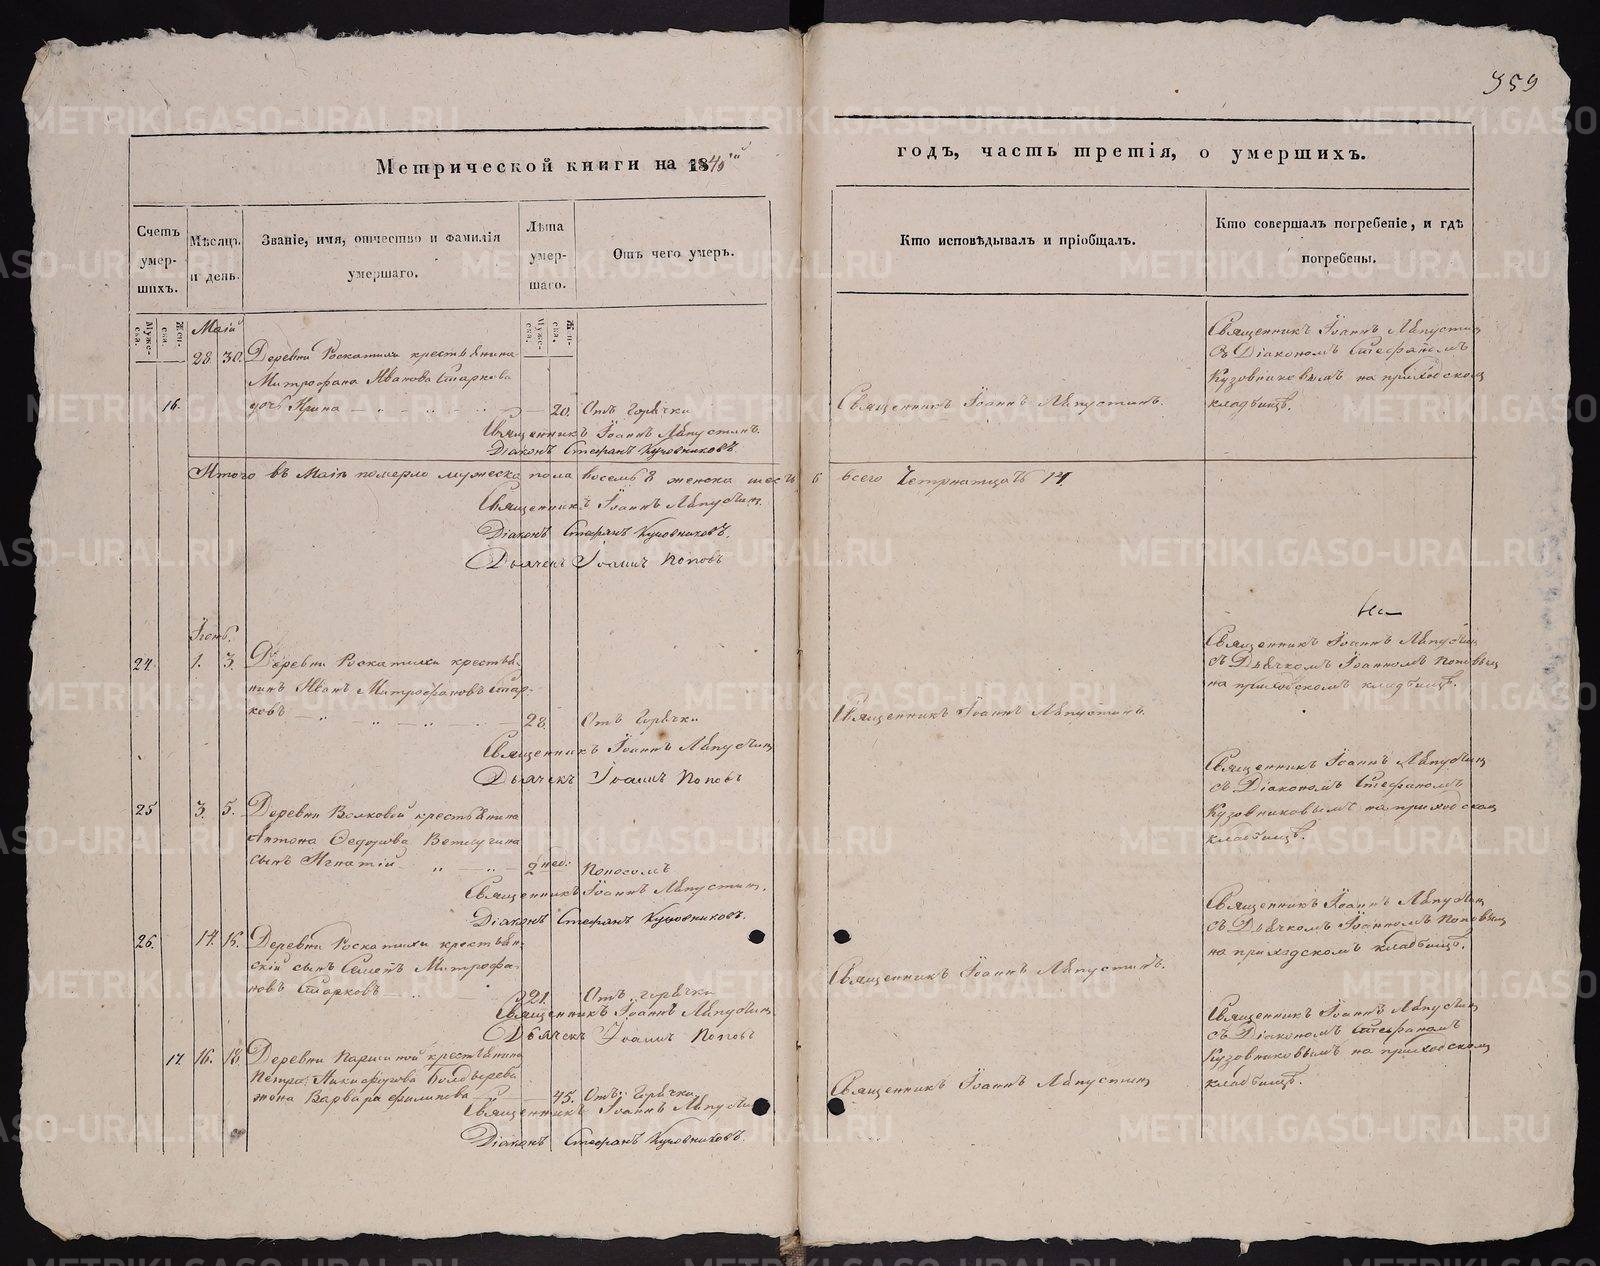 359
Метрической книги на 1840й
годъ, часть третія, о умершихъ.
Счетъ умер-шихъ.
Мѣсяцъ и день.
Званіе, имя, отчество и фамилія умершаго.
Лѣта умер-шаго.
Отъ чего умеръ.
Кто исповѣдывалъ и пріобщалъ.
Кто совершалъ погребеніе, и гдѣ погребены.
Муже-ска.
Жен-ска.
Муже-ска.
Жен-ска.
Маій
28. 30. Деревни Роскатихи крестьянина
Митрофана Иванова Старкова
16. дочь Ирина 20. Отъ горячки
Священникъ Іоаннъ Ляпустинъ.
Діаконъ Стефанъ Кузовниковъ.
Священникъ Іоаннъ Ляпустинъ.
Священникъ Іоаннъ Ляпустин
съ Діакономъ Стефаномъ
Кузовниковымъ на приходском
кладбищѣ.
Итого въ Маіѣ померло мужеска пола восемь 8 женска шесть 6 всего Четырнатцать 14
Священникъ Іоаннъ Ляпустин
Діаконъ Стефанъ Кузовниковъ.
Дьячекъ Іоаннъ Поповъ
Іюнь.
24. 1. 3. Деревни Роскатихи крестья-
нинъ Иванъ Митрофановъ Стар-
ковъ 28. Отъ Горячки
Священникъ Іоаннъ Ляпустин
Дьячекъ Іоаннъ Поповъ
Священникъ Іоаннъ Ляпустинъ.
Священникъ Іоаннъ Ляпустин
съ Дьячкомъ Іоанномъ Поповым
на приходскомъ кладбищѣ.
25 3. 5. Деревни Волковой крестьянина
Антона Федорова Ветлугина
сынъ Игнатій 2 нед: Поносомъ
Священникъ Іоаннъ Ляпустин.
Діаконъ Стефанъ Кузовниковъ.
Священникъ Іоаннъ Ляпустин
съ Діакономъ Стефаномъ
Кузовниковымъ на приходском
кладбищѣ.
26. 14. 15. Деревни Роскатихи крестьян-
скій сынъ Семенъ Митрофа-
новъ Старковъ 21. Отъ горячки
Священникъ Іоаннъ Ляпустин
Дьячекъ Іоаннъ Поповъ
Священникъ Іоаннъ Ляпустинъ.
Священникъ Іоаннъ Ляпустин
съ Дьячкомъ Іоанномъ Поповым
на приходскомъ кладбищѣ.
17. 16. 18. Деревни крестьянина
Петра Никифорова Болдырева
жена Варвара Филипова 45. Отъ Горячки
Священникъ Іоаннъ Ляпустин
Діаконъ Стефанъ Кузовниковъ.
Священникъ Іоаннъ Ляпустин
Священникъ Іоаннъ Ляпустин
съ Діакономъ Стефаномъ
Кузовниковымъ на приходском
кладбищѣ.
METRIKI.GASO-URAL.RU